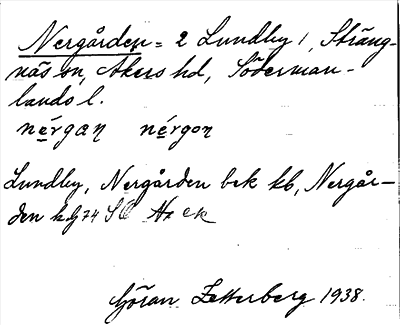 Nergården = 2 Lundby 1, Sträng-
näs sn, Åkers hd, Söderman-
lands l.
nérgan nérgon
Lundby, Nergården bek kb, Nergår-
den hg 74 SO
Göran Zetterberg 1938.